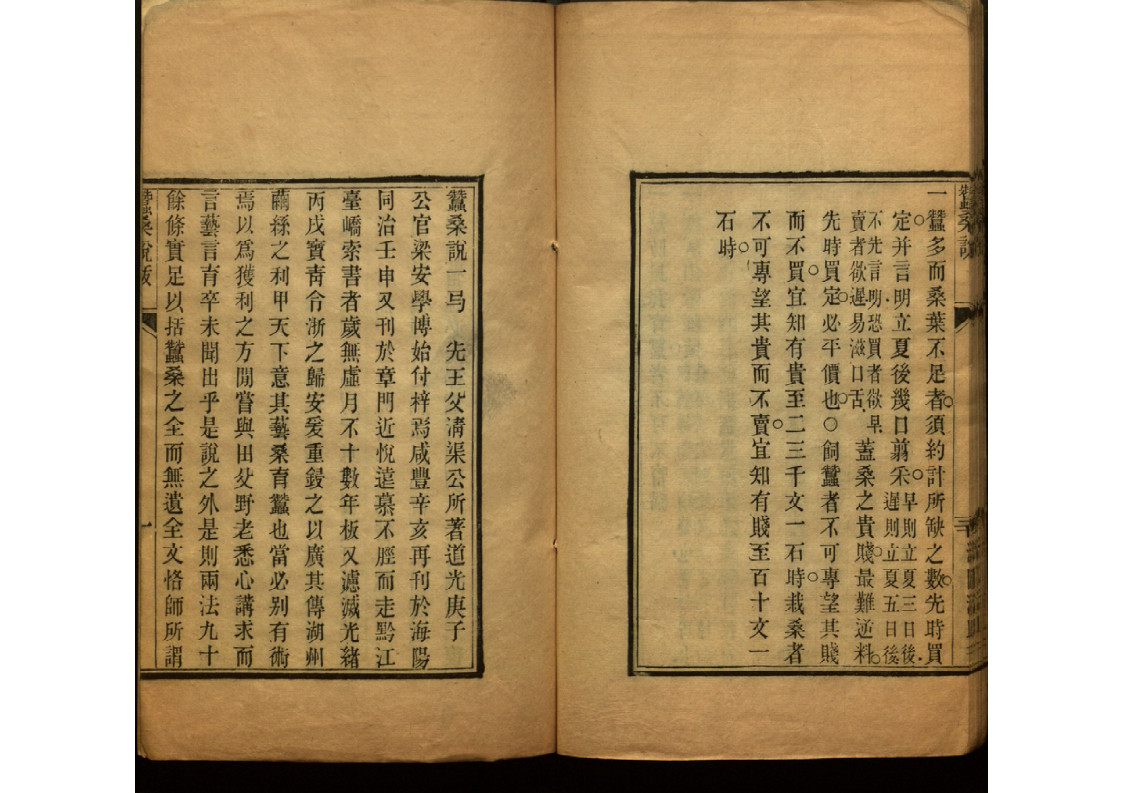 蠶桑說
一蠶多而桑葉不足者須約計所缺之數先時買
定并言明立夏後幾日翦采早則立夏三日後遲則立夏五日後
不先言明恐買者欲早賣者欲遲易滋口舌蓋桑之貴賤最難逆料
先時買定必平價也○飼蠶者不可專望其賤
而不買宜知有貴至二三千文一石時栽桑者
不可專望其貴而不賣宜知有賤至百十文一
石時
蠶桑說一弓 先王父淸渠公所著道光庚子
公官梁安學博始付梓焉咸豐辛亥再刊於海陽
同治壬申又刊於章門近悅遠慕不脛而走黔江
臺嶠索書者歲無虛月不十數年板又漶滅光緒
丙戌寳靑令浙之歸安爰重鋟之以廣其傳湖州
繭絲之利甲天下意其藝桑育蠶也當必别有術
焉以爲獲利之方閒嘗與田父野老悉心講求而
言藝言育卒未聞出乎是說之外是則兩法九十
餘條實足以括蠶桑之全而無遺全文恪師所謂
蠶桑說跋
一